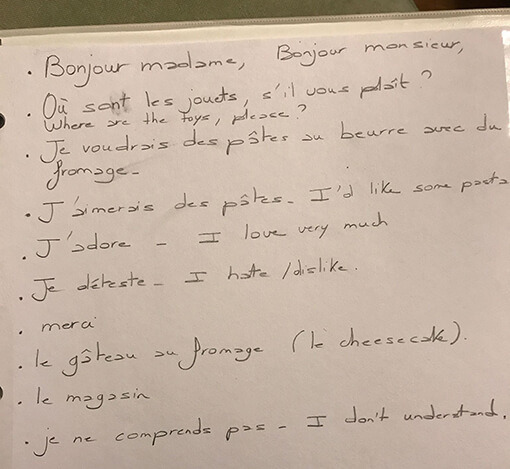 . Bonjour madame, Bonjour monsieur,
. Où sont les jouets, s'il vous plaît ?
Where are the toys, please ?
. Je voudrais des pâtes au beurre avec du
fromage -
. J'aimerais des pâtes - I'd like some pasta
. J'adore - I love very much
. Je déteste - I hate / dislike .
. merci
. le gâteau au fromage ( le cheesecake ) .
. le magasin
. je ne comprends pas - I don't understand .